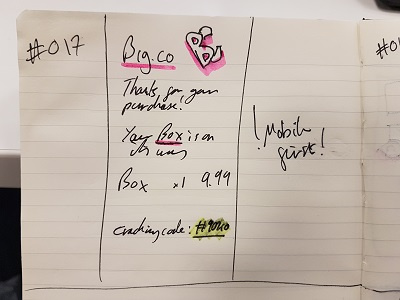 #017
Big.co
BC
Thanks for your
purchase!
Your Box is on
its way
Box x1 9.99
tracking code:
! Mobile
first!
#01